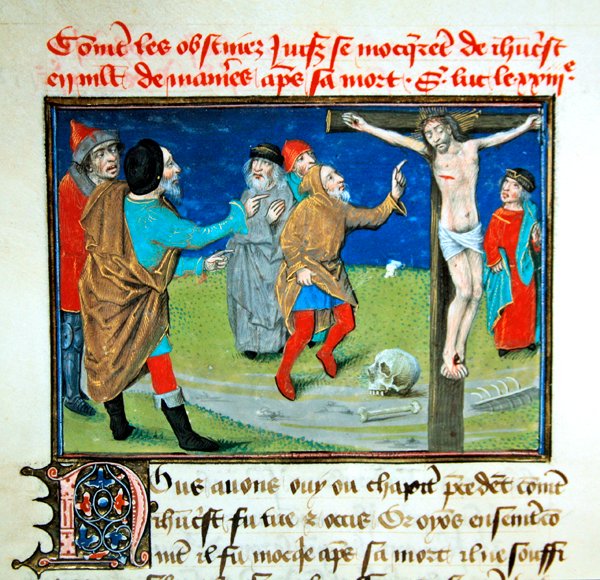 Com̄t les obstinez Juifz se mocquerēt de ih̄ucrist
en mlt̄ de manieres aps̄ sa mort. S. luc le xxiiiᵉ
Nous auons ouy ou chapitre p̄cedēt com̄t
ih̄ucrist fu tue et occis Or oyons ensem̄t co
m̄t il fu mocquie aps̄ sa mort il ne souffi